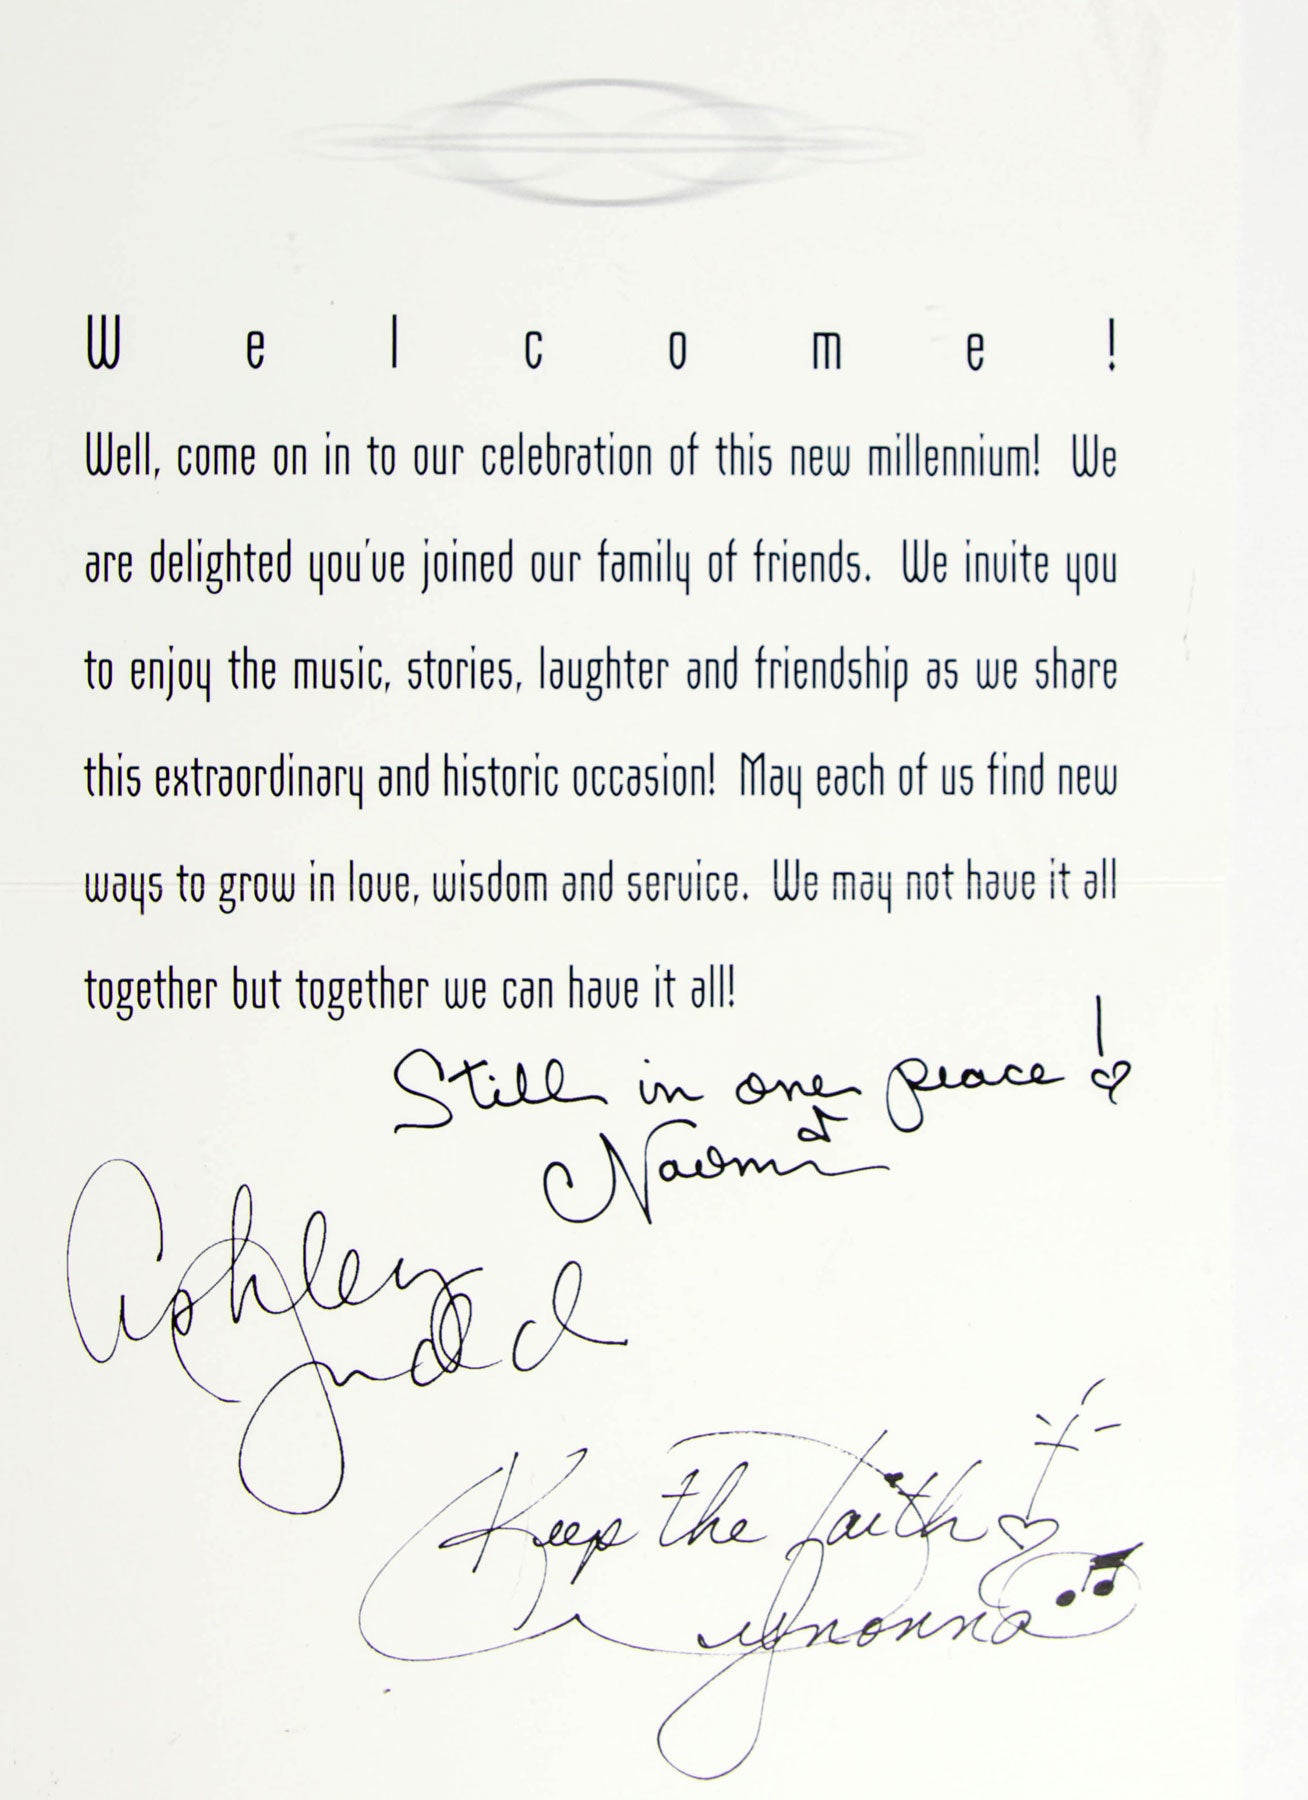 Welcome!
Well, come on in to our celebration of this new millennium! We
are delighted you've joined our family of friends. We invite you
to enjoy the music, stories, laughter and friendship as we share
this extraordinary and historic occasion! May each of us find new
ways to grow in love, wisdom and service. We may not have it all
together but together we can have it all!
Still in one peace!
Naomi
Ashley
Judd
Keep the faith
Wynonna